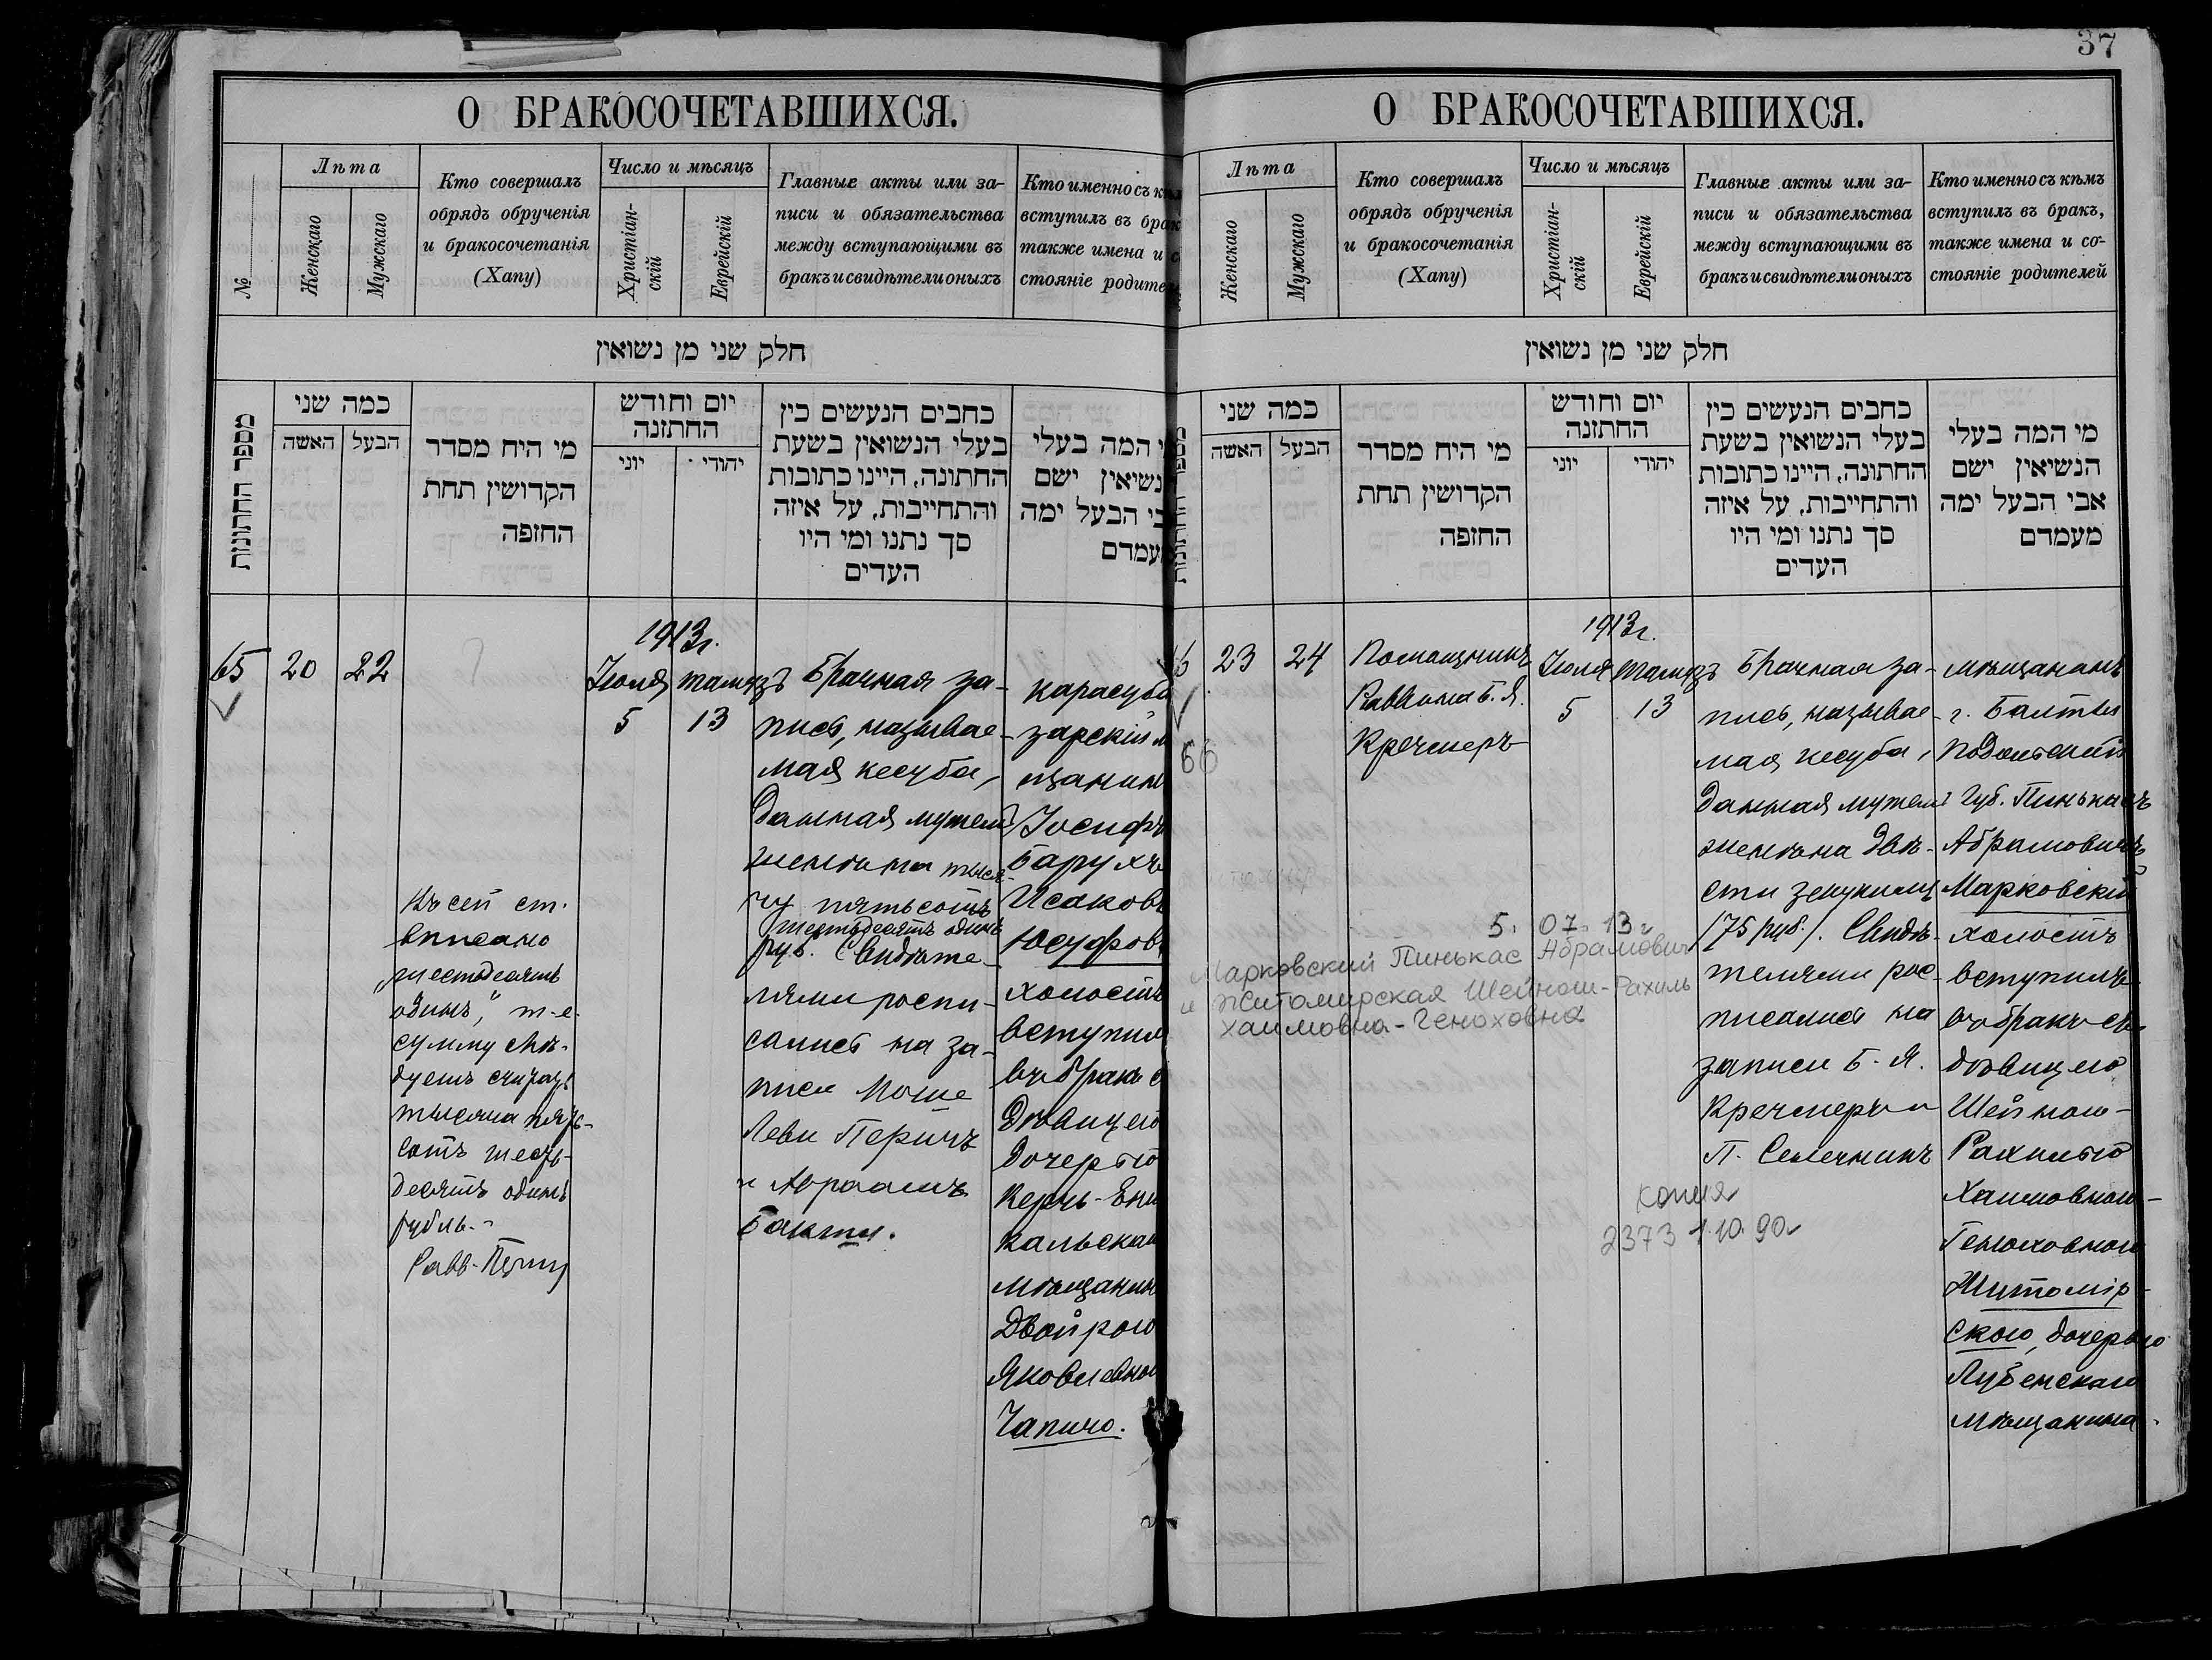 О БРАКОСОЧЕТАВШИХСЯ.
№
Лѣта
Женскаго
Мужскаго
Кто совершалъ
обрядъ обрученія
и бракосочетанія
(Хапу)
Число и мѣсяцъ
Христіан-
скій
Еврейскій
Главные акты или за-
писи и обязательства
между вступающими въ
бракъ и свидѣтели оныхъ
Кто именно съ кѣм
вступилъ въ брак
также имена и с
стояніе родите
חלק שני מן נשואין
מספר החתונות
כמה שני
האשה
הבעל
מי היח מסדר
הקדושין תחת
החזפה
יום וחודש
החתזנה
יוני
יהודי
כחבים הנעשים כין
בעלי הנשואין בשעת
החתונה, היינו כתובות
והתחייבות, על איזה
סך נתנו ומי היו
העדים
י המה בעלי
נשיאין ישם
בי הבעל ימה
עמדם
65
20
22
1913г.
Іюля
5
тамузъ
13
Брачная за-
пись, называе-
мая кесуба,
данная мужемъ
женѣ на тыся-
чу пятьсотъ
шестьдесятъ одинъ
руб. Свидѣте-
лями роспи-
сались на за-
писи Моше
Леви Перичъ
и Авраамъ
Бакши.
карасуба
зарскій м
щанин
Іосифъ
Барухъ
Исаков
Юсуфов
холостъ
вступил
въ бракъ с
дѣвицею
дочерью
Керчь-Ени
кальскаг
мѣщанин
Двойрою
Яковлевною
Чапичо.
Къ сей ст.
вписано
„шестьдесятъ
одинъ", т-е.
сумму слѣ-
дуетъ считать
тысяча пять-
сотъ шесть-
десятъ одинъ
рубль.-
Равв.
37
О БРАКОСОЧЕТАВШИХСЯ.
Лѣта
Женскаго
Мужскаго
Кто совершалъ
обрядъ обрученія
и бракосочетанія
(Хапу)
Число и мѣсяцъ
Христіан-
скій
Еврейскій
Главные акты или за-
писи и обязательства
между вступающими въ
бракъ и свидѣтели оныхъ
Кто именно съ кѣмъ
вступилъ въ бракъ,
также имена и со-
стояніе родителей
חלק שני מן נשואין
כמה שני
האשה
הבעל
מי היח מסדר
הקדושין תחת
החזפה
יום וחודש
החתזנה
יוני
יהודי
כחבים הנעשים כין
בעלי הנשואין בשעת
החתונה, היינו כתובות
והתחייבות, על איזה
סך נתנו ומי היו
העדים
מי המה בעלי
הנשיאין ישם
אבי הבעל ימה
מעמדם
6
66
23
24
Помощникъ
Раввина Б. Я.
Кречмеръ
1913г.
Іюля
5
тамузъ
13
Брачная за-
пись, называе-
мая кесуба,
данная мужемъ
женѣ на двѣ-
сти зекукимъ
/75 руб./. Свидѣ-
телями рос-
писались на
записи Б. Я.
Кречмеръ и
П. Селечникъ
мѣщанинъ
г. Балты
Подольской
Губ. Пинькасъ
Абрамовичъ
Марковскій
холостъ
вступилъ
въ бракъ съ
дѣвицею
Шейною-
Рахилью
Хаимовною-
Геноховною
Житомір-
скою, дочерью
Лубенскаго
мѣщанина.
5. 07. 13 г
Марковский Пинькас Абрамович
и Житомирская Шейною-Рахиль
Хаимовна-Геноховна
копия
2373 1.10.90г